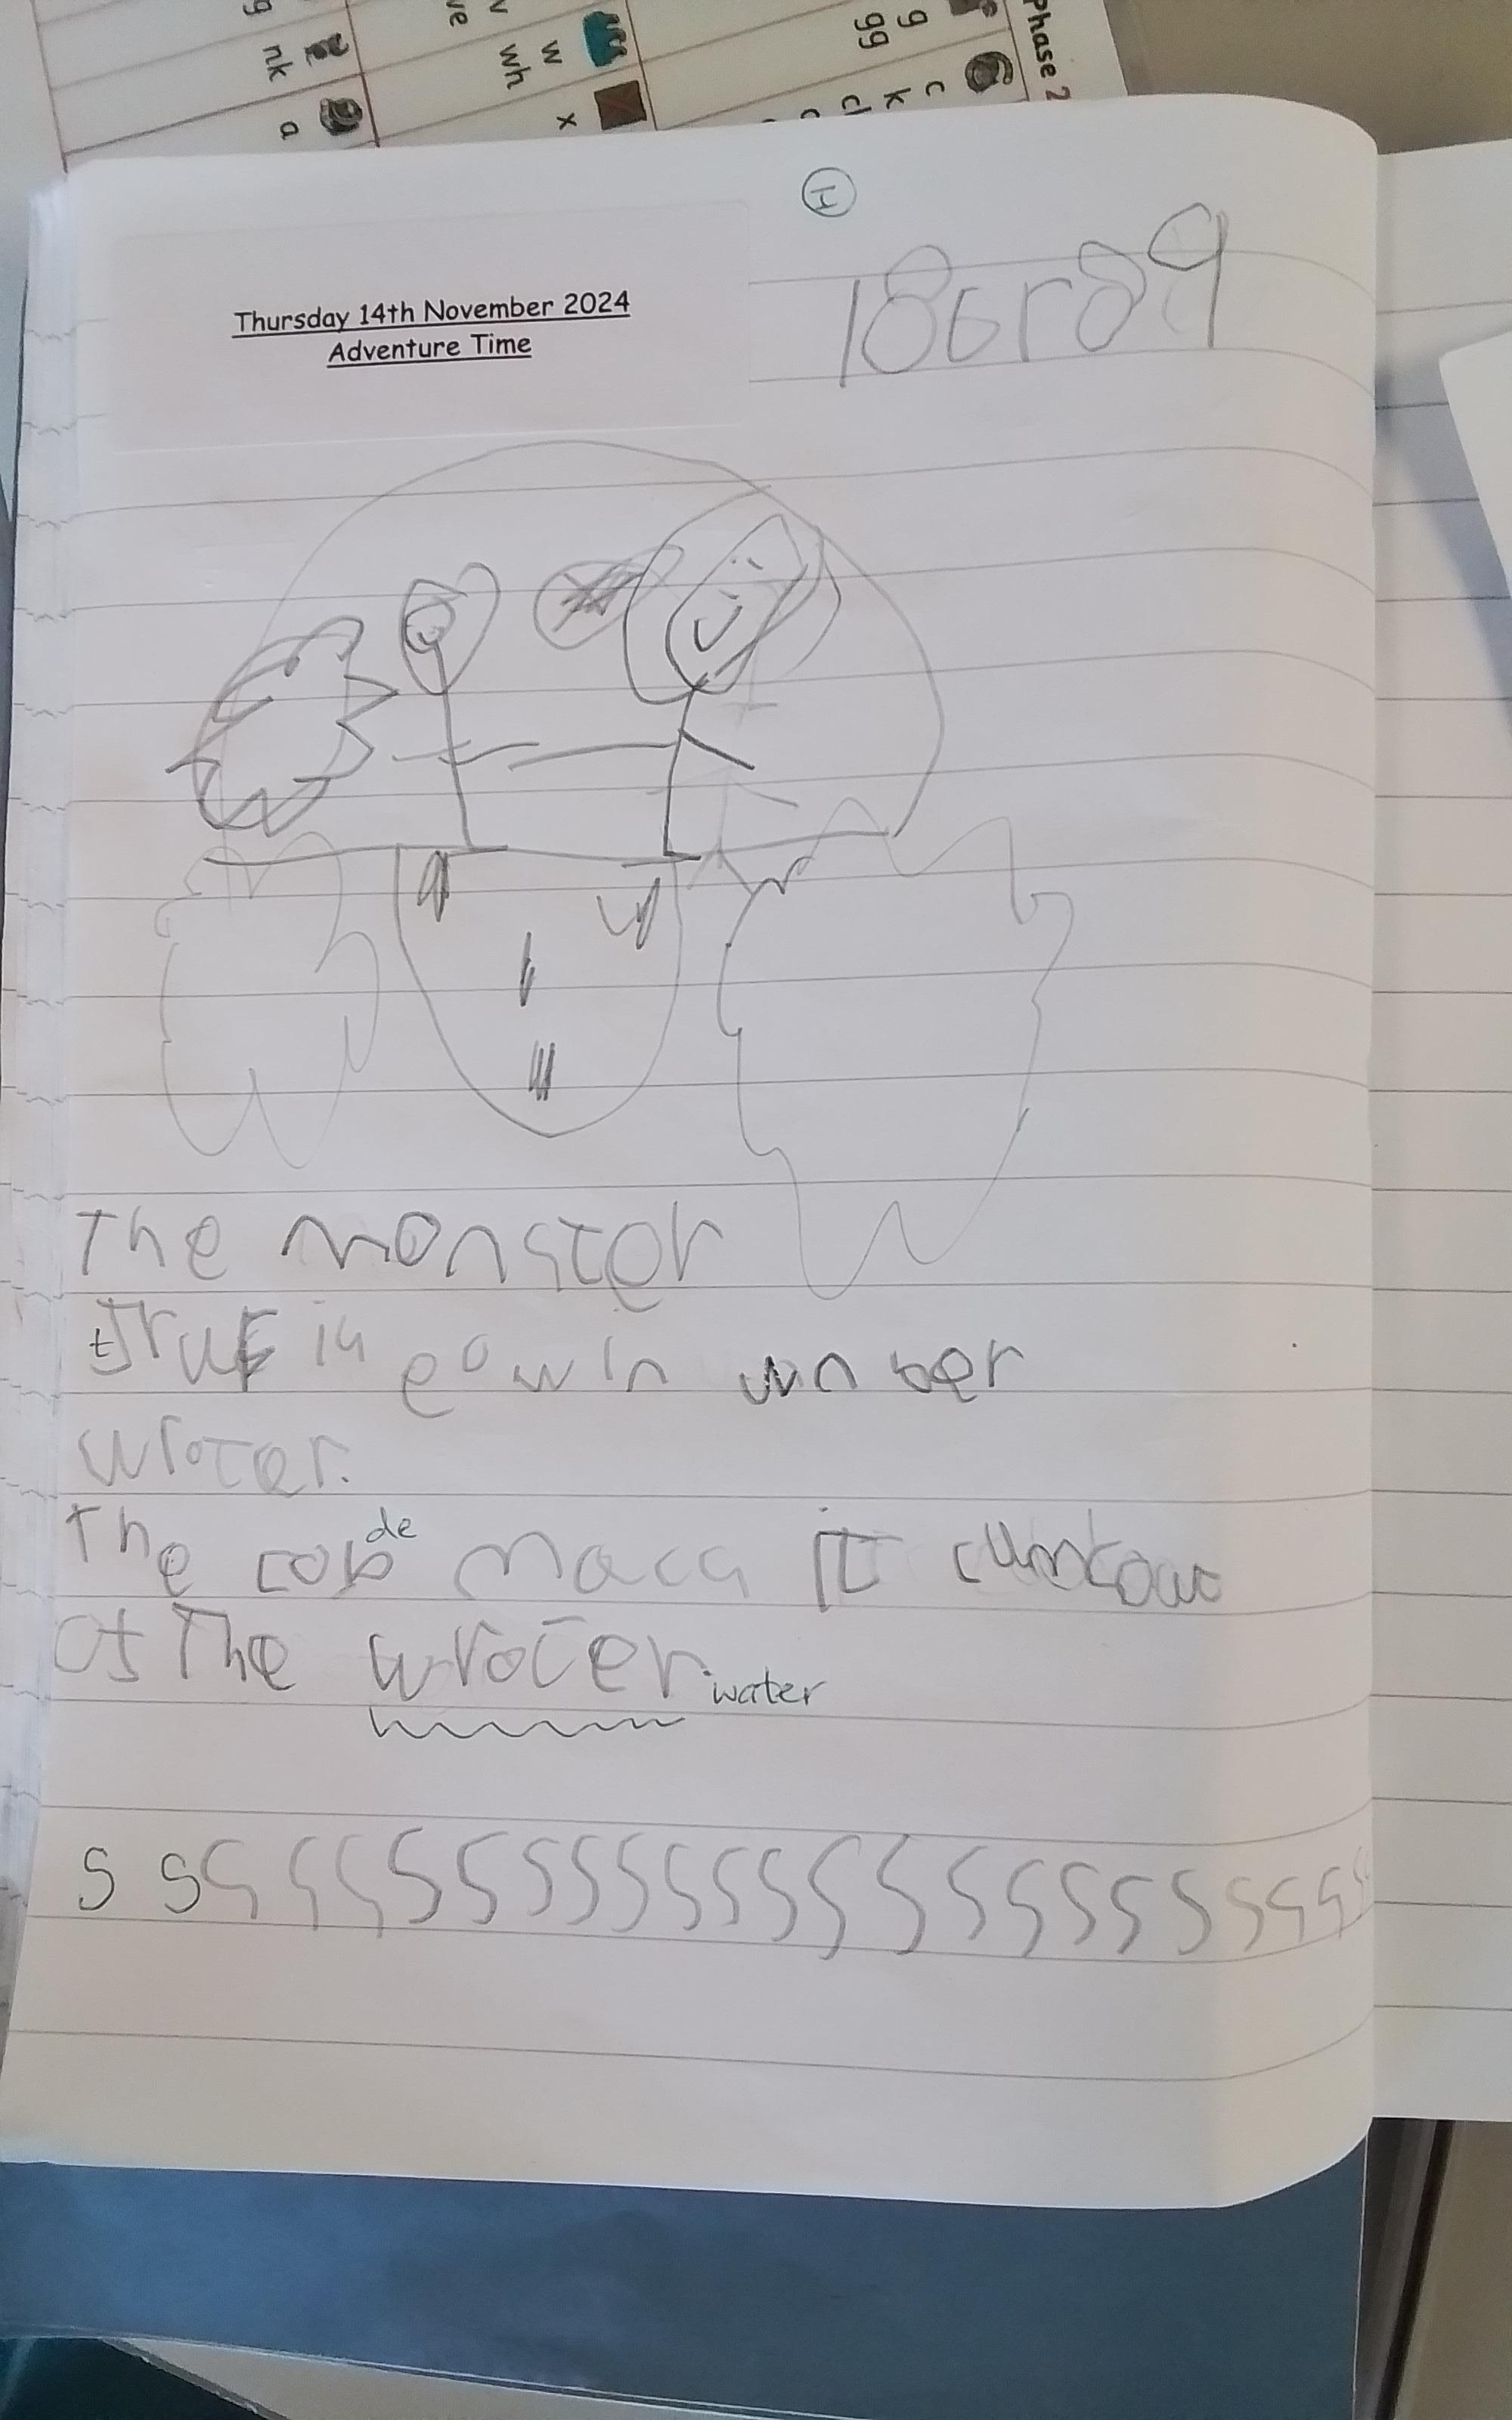 Phase 2
g
gg
c
k
w
wh
x
ve
nk
a
I
Thursday 14th November 2024
Adventure Time
The monster
truk is eowin unber
wroter.
The cob de macs it
of the wroter. water
s s s s s s s s s s s s s s s s s s s s s s s s s